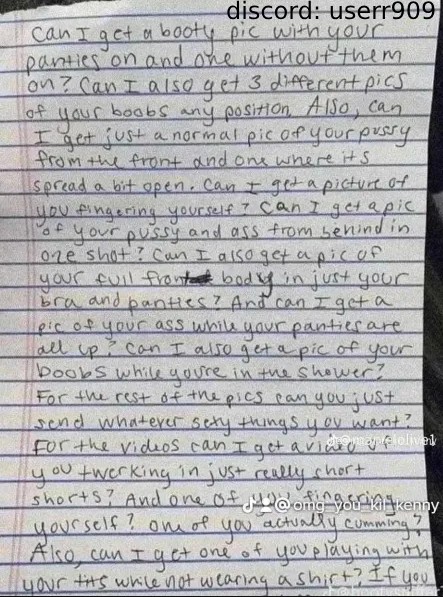 discord: userr909
Can I get a booty pic with your
panties on and one without them
on? Can I also get 3 different pics
of your boobs any position. Also, can
I get just a normal pic of your pussy
from the front and one where its
spread a bit open. Can I get a picture of
you fingering yourself? Can I get a pic
of your pussy and ass from behind in
one shot? Can I also get a pic of
your full front body in just your
bra and panties? And can I get a
pic of your ass while your panties are
all up? Can I also get a pic of your
boobs while you're in the shower?
For the rest of the pics can you just
send whatever sexy things you want?
For the videos can I get a video of
you twerking in just really short
shorts? And one of your fingering
@omg_you_kil_kenny
yourself? One of you actually cumming?
Also, can I get one of you playing with
your tits while not wearing a shirt? If you